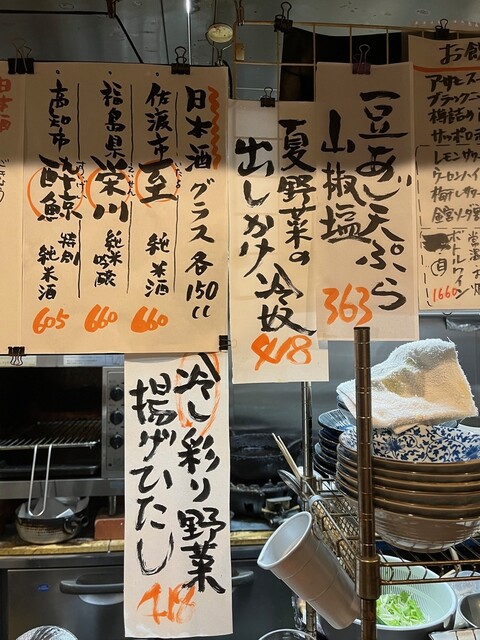 お飲
ブラックニ
梅詰め
サッポロ
レモンサワー
ウーロンハイ
梅干しサワ
ボトルワイン
1660
豆あじ天ぷら
山椒塩
363
夏野菜の
出しかけ冷奴
418
日本酒グラス各150cc
佐渡市 至 いたる 純米酒
660
福島県 栄川 純米吟醸
660
高知市 酔鯨 特別純米酒
605
日本酒
冷し彩り野菜
揚げびたし
418